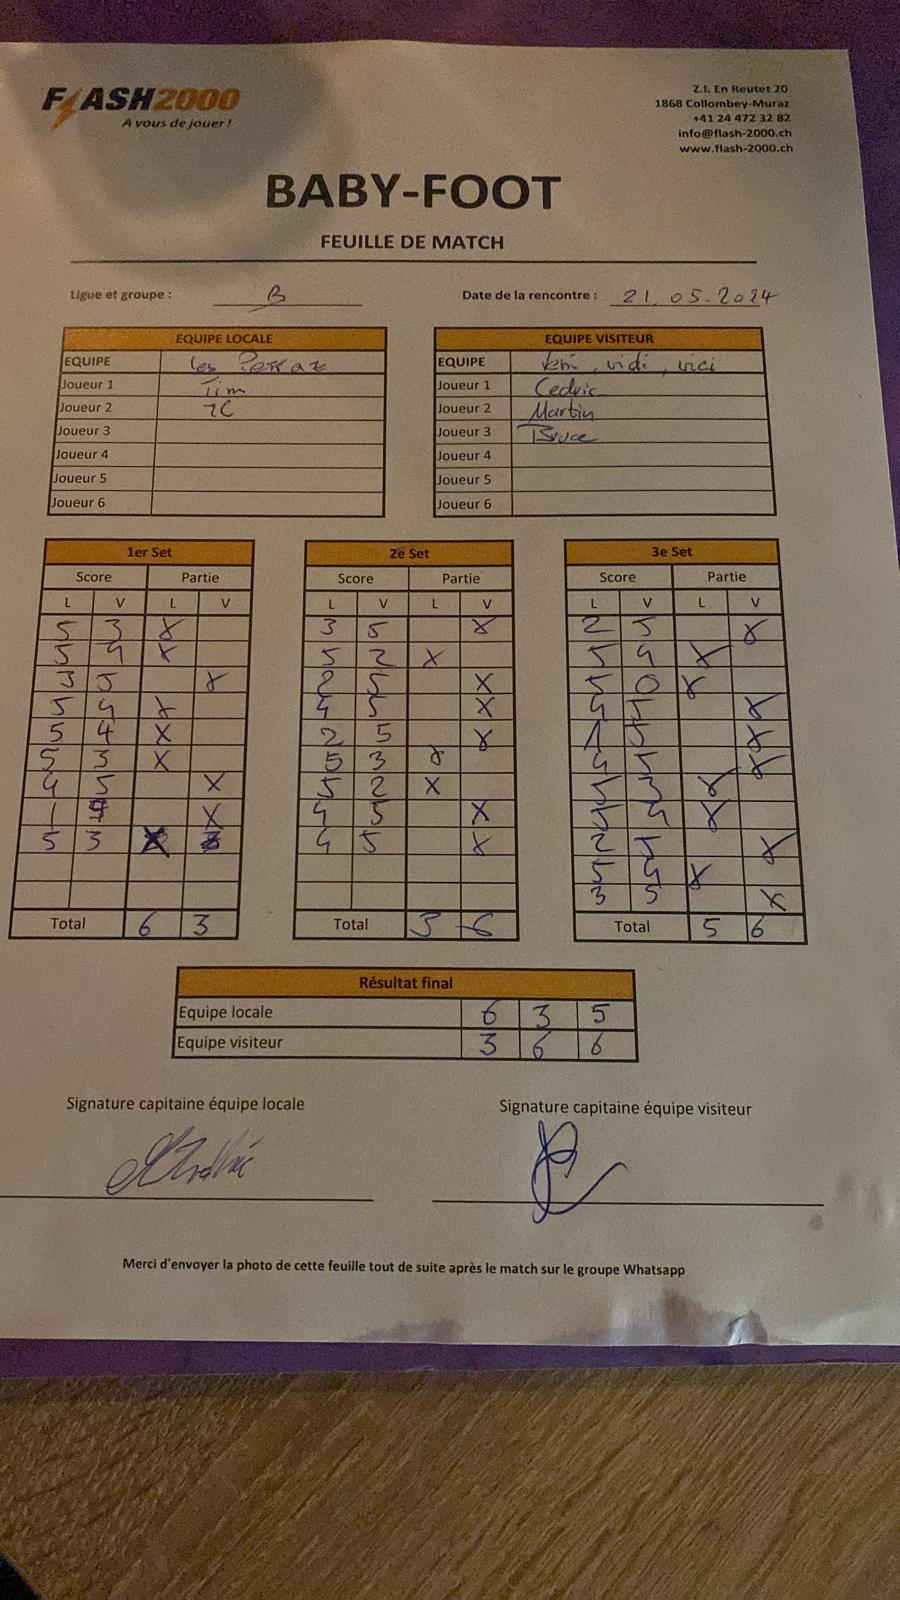 FLASH2000
A vous de jouer !
Z.I. En Reutet 20
1868 Collombey-Muraz
+41 24 472 32 82
info@flash-2000.ch
www.flash-2000.ch
BABY-FOOT
FEUILLE DE MATCH
Ligue et groupe : B
Date de la rencontre : 21.05.2024
EQUIPE LOCALE
EQUIPE Les
Joueur 1 Tim
Joueur 2
Joueur 3
Joueur 4
Joueur 5
Joueur 6
EQUIPE VISITEUR
EQUIPE Veni, vidi, vici
Joueur 1 Cedric
Joueur 2 Martin
Joueur 3 Bruce
Joueur 4
Joueur 5
Joueur 6
1er Set
Score Partie
L V L V
5 3 X
5 4 X
3 5 X
5 4 X
5 4 X
5 3 X
4 5 X
1 X
5 3 X
Total 6 3
2e Set
Score Partie
L V L V
3 5 X
5 2 X
5 X
4 5 X
2 5 X
5 3 X
5 2 X
4 5 X
4 5 X
Total 3 6
3e Set
Score Partie
L V L V
2 5 X
5 4 X
5 0 X
4 5 X
1 5 X
4 5 X
5 3 X
5 4 X
2 5 X
5 4 X
3 5 X
Total 5 6
Résultat final
Equipe locale 6 3 5
Equipe visiteur 3 6 6
Signature capitaine équipe locale
Signature capitaine équipe visiteur
Merci d'envoyer la photo de cette feuille tout de suite après le match sur le groupe Whatsapp